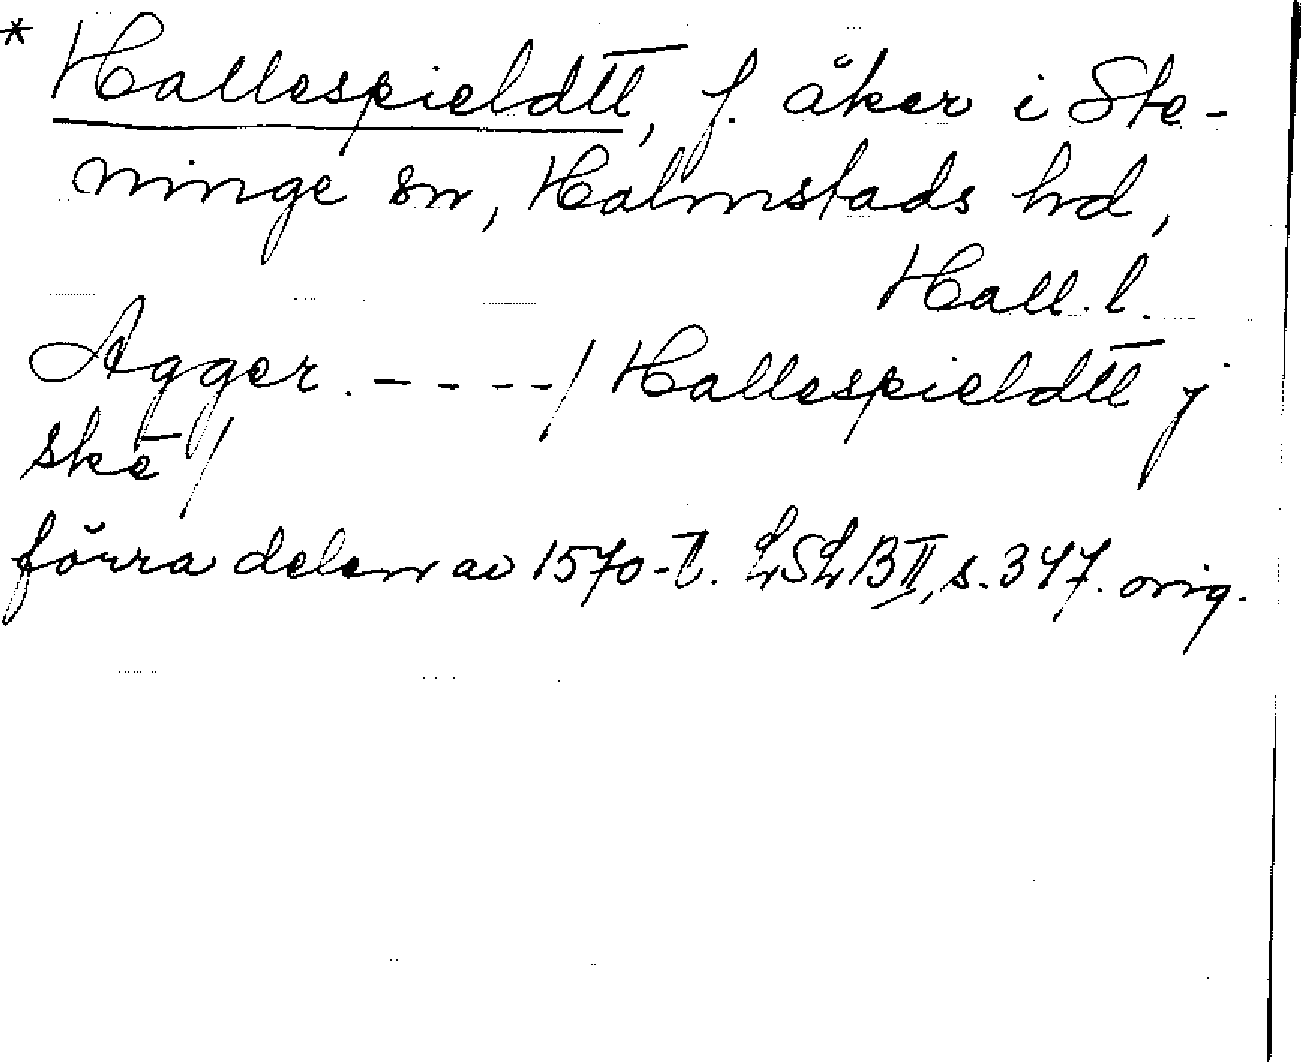 * Hallespieldt̅t̅, f. åker i Ste-
ninge sn, Halmstads hd,
Hall. l.
Agger. - - - - / Hallespieldt̅t̅ j
skē /
förra delen av 1570-t. LSLB II, s. 347. orig.